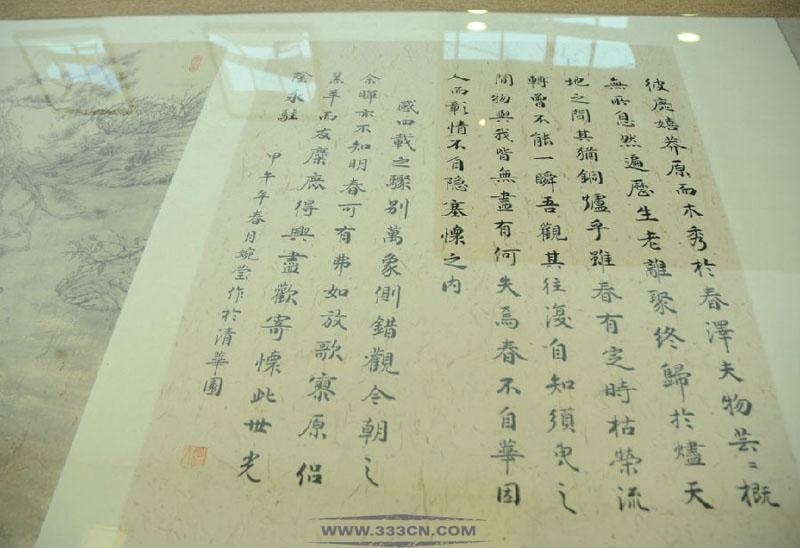 彼鹿嬉莽原而木秀於春澤夫物芸〻概
無所息然遍歷生老離聚終歸於燼天
地之間其猶銅爐乎雖春有定時枯榮流
轉曾不能一瞬吾觀其往復自知須臾之
間物與我皆無盡有何失焉春不自華因
人而彰情不自隐塞懷之内
感四載之驟别萬象側錯觀今朝之
余暉亦不知明春可有弗如放歌寮原侣
羔羊而友麋鹿得興盡歡寄懷此世光
陰永駐
甲午年春月婉莹作於清華園
WWW.333CN.COM